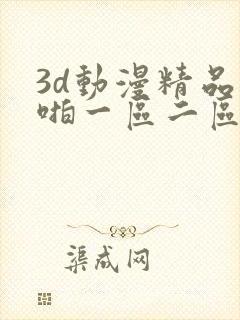 3d動漫精品
啪一區二區
渠成网